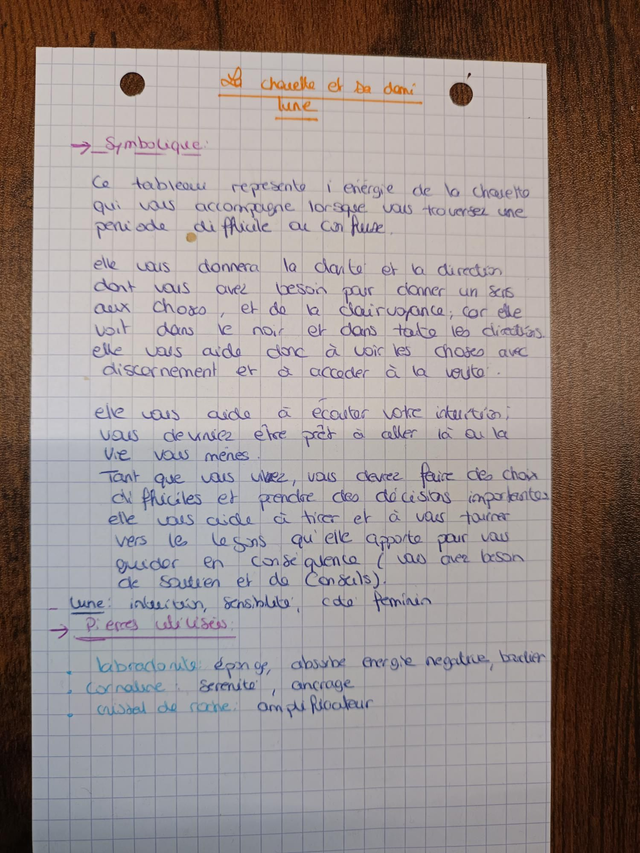 La chouette et sa demi
lune
→ Symbolique:
Ce tableau represente l énergie de la chouette
qui vous accompagne lorsque vous traversez une
periode difficile ou confuse.
elle vous donnera la clarté et la direction
dont vous avez besoin pour donner un sens
aux choses, et de la clairvoyance, car elle
voit dans le noir et dans toute les directions
elle vous aide donc à voir les choses avec
discernement et à acceder à la verité.
elle vous aide à écouter votre intuition;
vous devriez être prêt à aller là ou la
vie vous mènes.
Tant que vous vivez, vous devrez faire des choix
difficiles et prendre des décisions importantes
elle vous aide à tirer et à vous tourner
vers les leçons qu'elle apporte pour vous
guider en conséquence (vous avez besoin
de soutien et de conseils).
- Lune: intuition, sensiblité, coté feminin
→ Pierres utilisées:
. labradorite éponge, absorbe energie negative,
. cornaline: serenité, ancrage
. cristal de roche: amplificateur